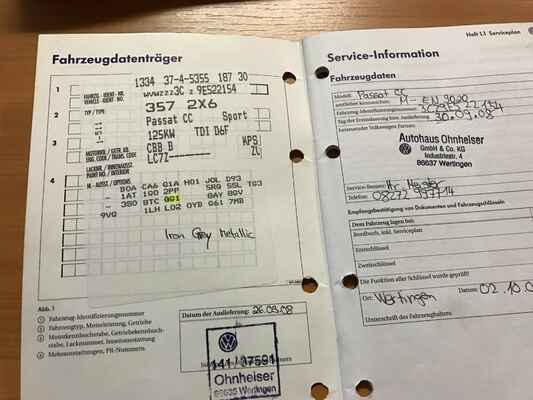 Fahrzeugdatenträger
1
FAHRZG.-IDENT-NR.
VEHICLE-IDENT-NO.
1334 37-4-5355 187 30
WVWZZZ3C Z 9E522154
2
TYP / TYPE
357 2X6
Passat CC Sport
125KW TDI D6F
3
MOTORKB. / GETR.KB.
ENG. CODE / TRANS. CODE
CBB B KPS
LC7Z ZL
LACKNR. / INNENAUSST.
PAINT NO. / INTERIOR
4
M.-AUSST. / OPTIONS
BOA CA6 G1A H01 JOL D93
1AT 1G0 2PP 5RG 5SL TG3
3S0 BTC GG1 GAY 8GV
9VG 1LH L02 0YB QG1 7MB
Iron Grey Metallic
Abb. 1
① Fahrzeug-Identifizierungsnummer
② Fahrzeugtyp, Motorleistung, Getriebe
③ Motorkennbuchstabe, Getriebekennbuchstabe, Lacknummer, Innenausstattung
④ Mehrausstattungen, PR-Nummern
Datum der Auslieferung: 26.09.08
141 / 37591
Ohnheiser
86637 Wertingen
Heft 1.1 Serviceplan
Service-Information
Fahrzeugdaten
Modell: Passat CC
amtliches Kennzeichen: M-EN 9020
Fahrzeug-Identifizierungsnummer:
Tag der Erstzulassung bzw. Auslieferung: 30.09.08
Betreuender Volkswagen Partner:
Autohaus Ohnheiser
GmbH & Co. KG
Industriestr. 4
86637 Wertingen
Service-Berater: Hr.
Telefon: 08272
Empfangsbestätigung von Dokumenten und Fahrzeugschlüsseln
Dem Fahrzeug lagen bei:
Bordbuch, inkl. Serviceplan
Erstschlüssel
Zweitschlüssel
Die Funktion aller Schlüssel wurde geprüft
Ort: Wertingen Datum: 02.10.0
Unterschrift des Fahrzeughalters